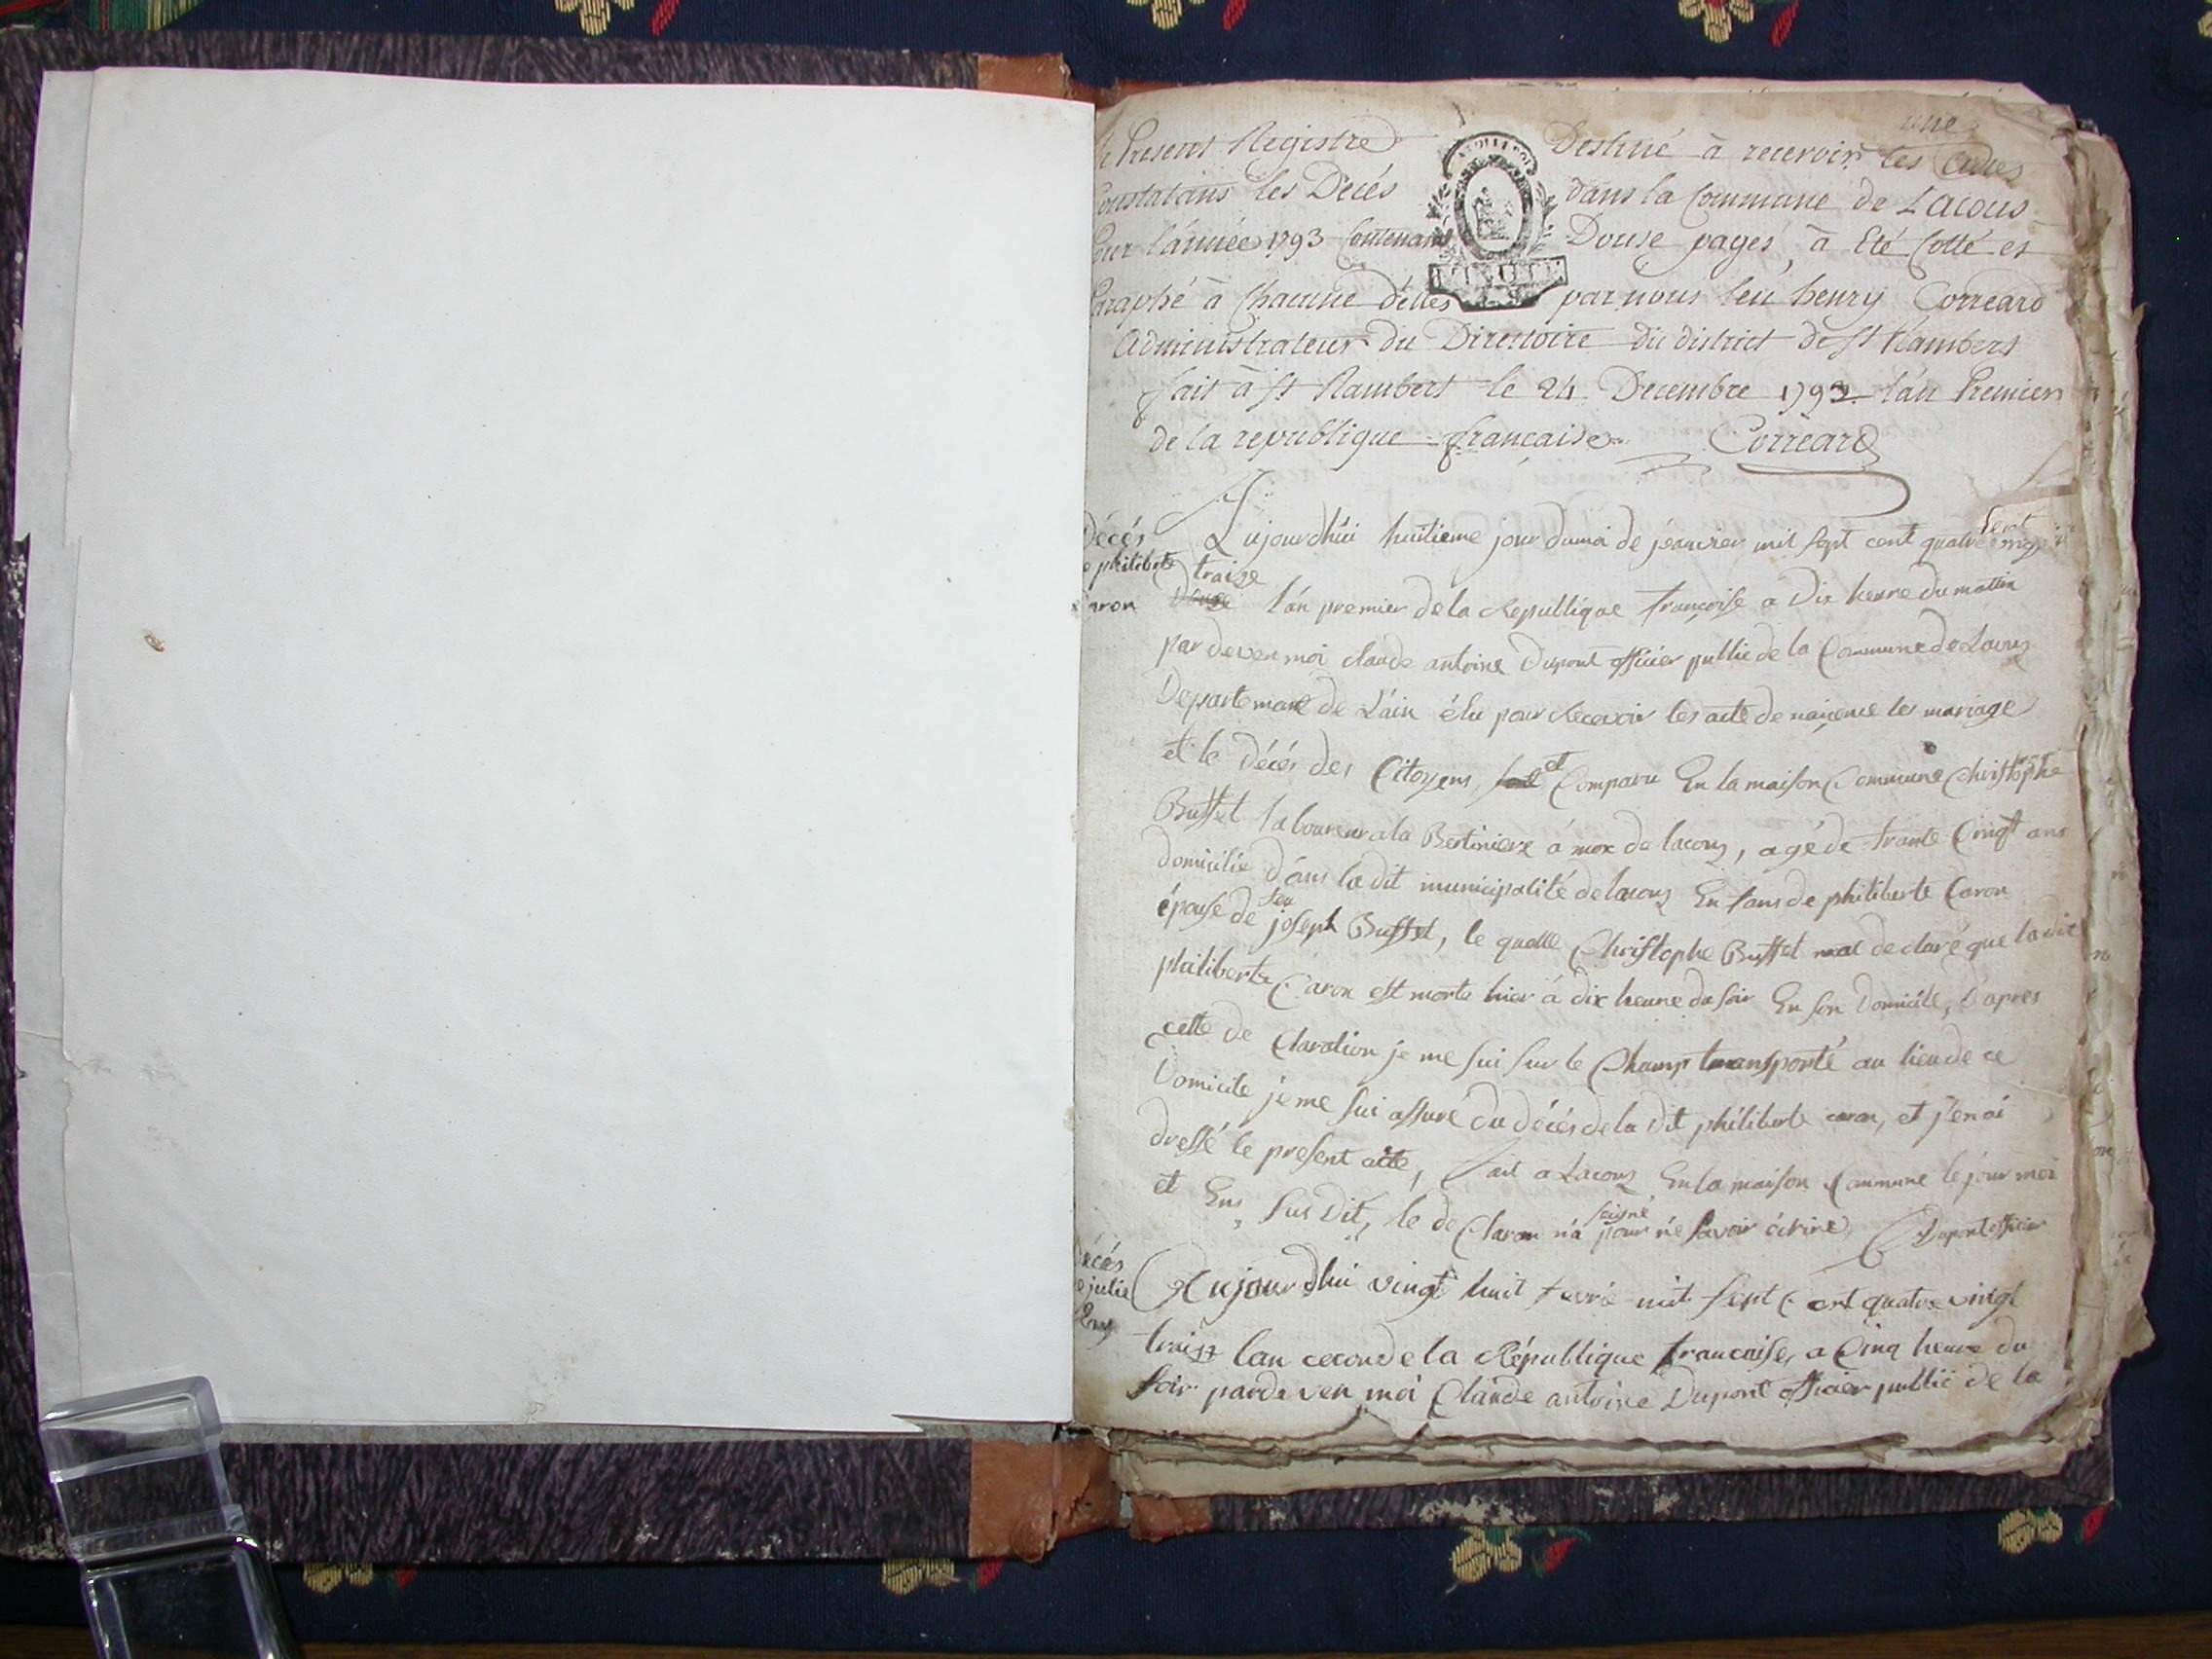 une
Present Registre Destiné à recevoir les Actes
Constatans les Décés dans la Commune de Lacous
Pour l'année 1793 Contenant Douse pages, à Eté Cotté et
Paraphé à Chacune d'elles par nous henry Correard
Administrateur du Directoire du district de St Rambert
fait à St Rambert le 24 Decembre 1792 l'an Premier
de la republique française Correard
Décés
philiberte
Caron
Aujourdhui huitieme jour du moi de jeanvier mil sept cent quatre vingt
traize
l'an premier de la Republique françoise a Dix heure du mattin
par deven moi claude antoine Dupont officier public de la Commune de Lacous
Departemant de L'ain élu pour Recevoir les acte de naicence les mariage
et le Décés des Citoyens, et Comparu En la maison Commune Christophe
Buffet laboureur a la Bertiniere de lacous, agé de trante Cingt ans
domicilié dans la dit municipalité de lacous En fans de philiberte Caron
épouse de feu joseph Buffet, le quelle Christophe Buffet mat declaré que la dit
philiberte Caron est morte hier à dix heure du soir En son Domicile, D'apres
cette de Claration je me sui sur le Champ transporté au lieu de ce
Domicile je me sui assuré du décés de la Dit philiberte caron, et j'en ai
dressé le present acte, fait a Lacous En la maison Commune le jour moi
et Ens sus Dit, le de Claran n'a seigné pour ne savoir écrire Dupont officier
Décés
julie
Aujourdhui vingt huit fevrié mil sept Cent quatre vingt
traize lan ceconde la République francaise, a Cinq heure du
soir par de ven moi Claude antoine Dupont officier public de la